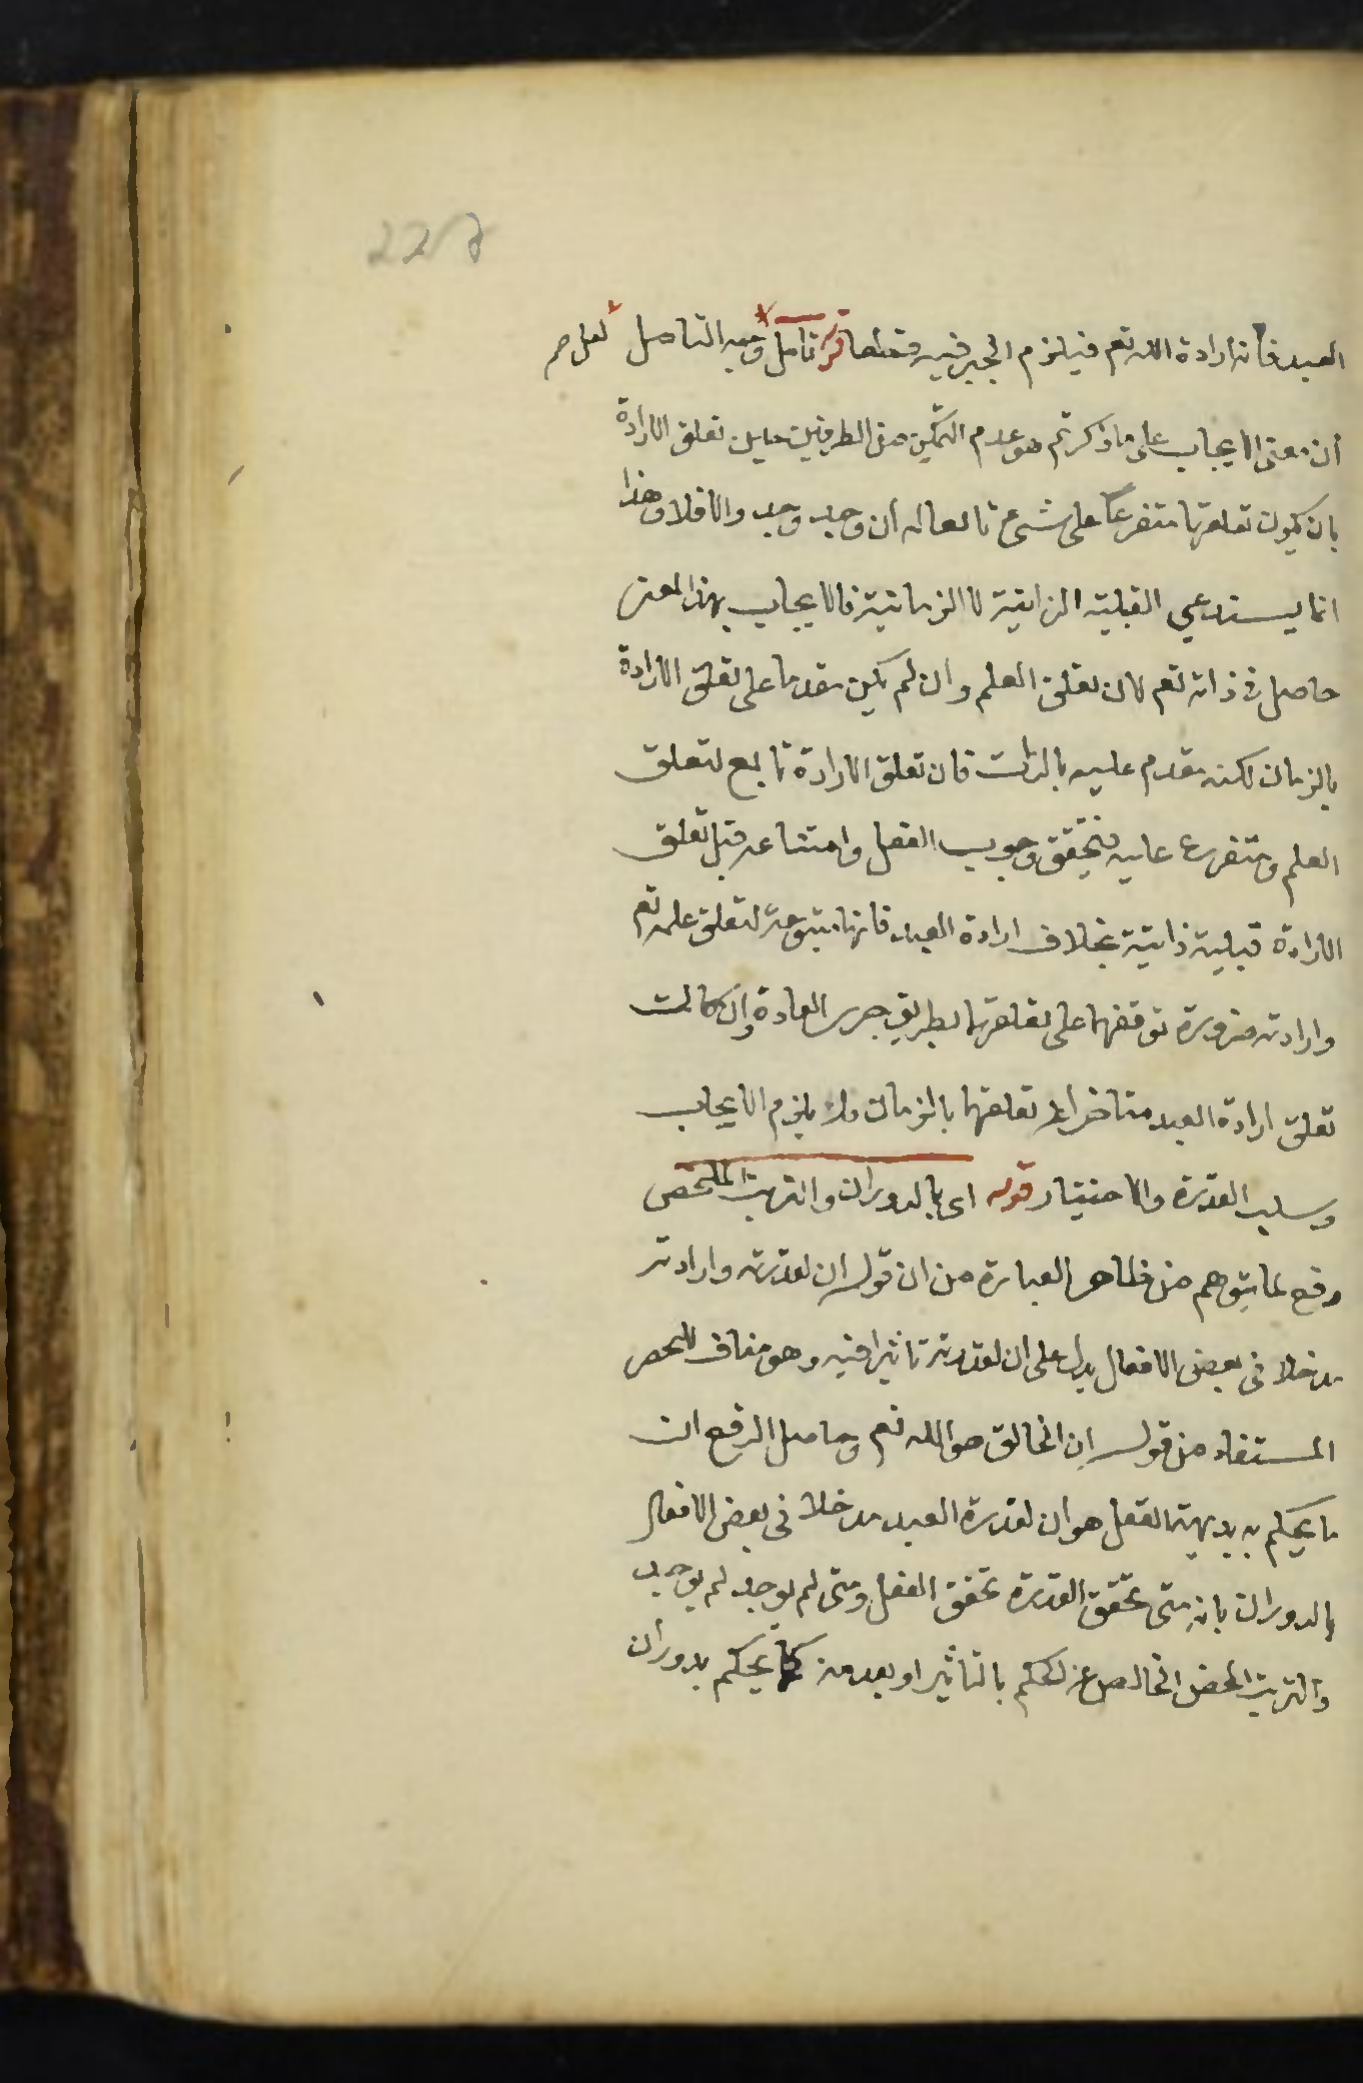 228
العبد فانه ارادة الله تعم فيلزم الجبر فيه قطعا قوله تامل وجه التامل لعل
أن معنى الايجاب على ما ذكرتم هو عدم التمكين من الطرفين حين تعلق الارادة
بان يكون تعلقها متفرعا على شئ تابعا له أن وجد وجد والا فلا وهذا
انما يستدعي القبلية الذاتية لا الزمانية فالايجاب بهذا المعنى
حاصل في ذاته تعم لان تعلق العلم وان لم يكن مقدما على تعلق الارادة
بالزمان لكنه مقدم عليه بالذات فان تعلق الارادة تابع لتعلق
العلم ومتفرع عليه فيتحقق وجوب الفعل وامتناعه قبل تعلق
الارادة قبلية ذاتية بخلاف ارادة العبد فانها متوجهة لتعلق علمه تعم
وارادته ضرورة توقفها على تعلقهما بطريق جرى العادة وان كانت
تعلق ارادة العبد متاخرا عن تعلقهما بالزمان ولا يلزم الايجاب
وسلب القدرة والاختيار قوله اى بالدوران والترتب المحض
دفع لما يتوهم من ظاهر العبارة من ان قوله ان لقدرته وارادته
مدخلا فى بعض الافعال يدل على ان لقدرته تاثيرا فيه وهو مناف للحصر
المستفاد من قوله ان الخالق هو الله تعم وحاصل الدفع ان
ما يحكم به بديهية العقل هو ان لقدرة العبد مدخلا فى بعض الافعال
بالدوران بانه متى تحقق القدرة تحقق الفعل ومتى لم يوجد لم يوجد
والترتب المحض الخالص عن الحكم بالتاثير او بعدمه كما يحكم بدوران